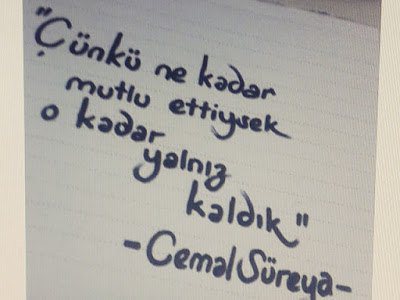 "Çünkü ne kadar
mutlu ettiysek
o kadar
yalnız
kaldık"
-Cemal Süreya-